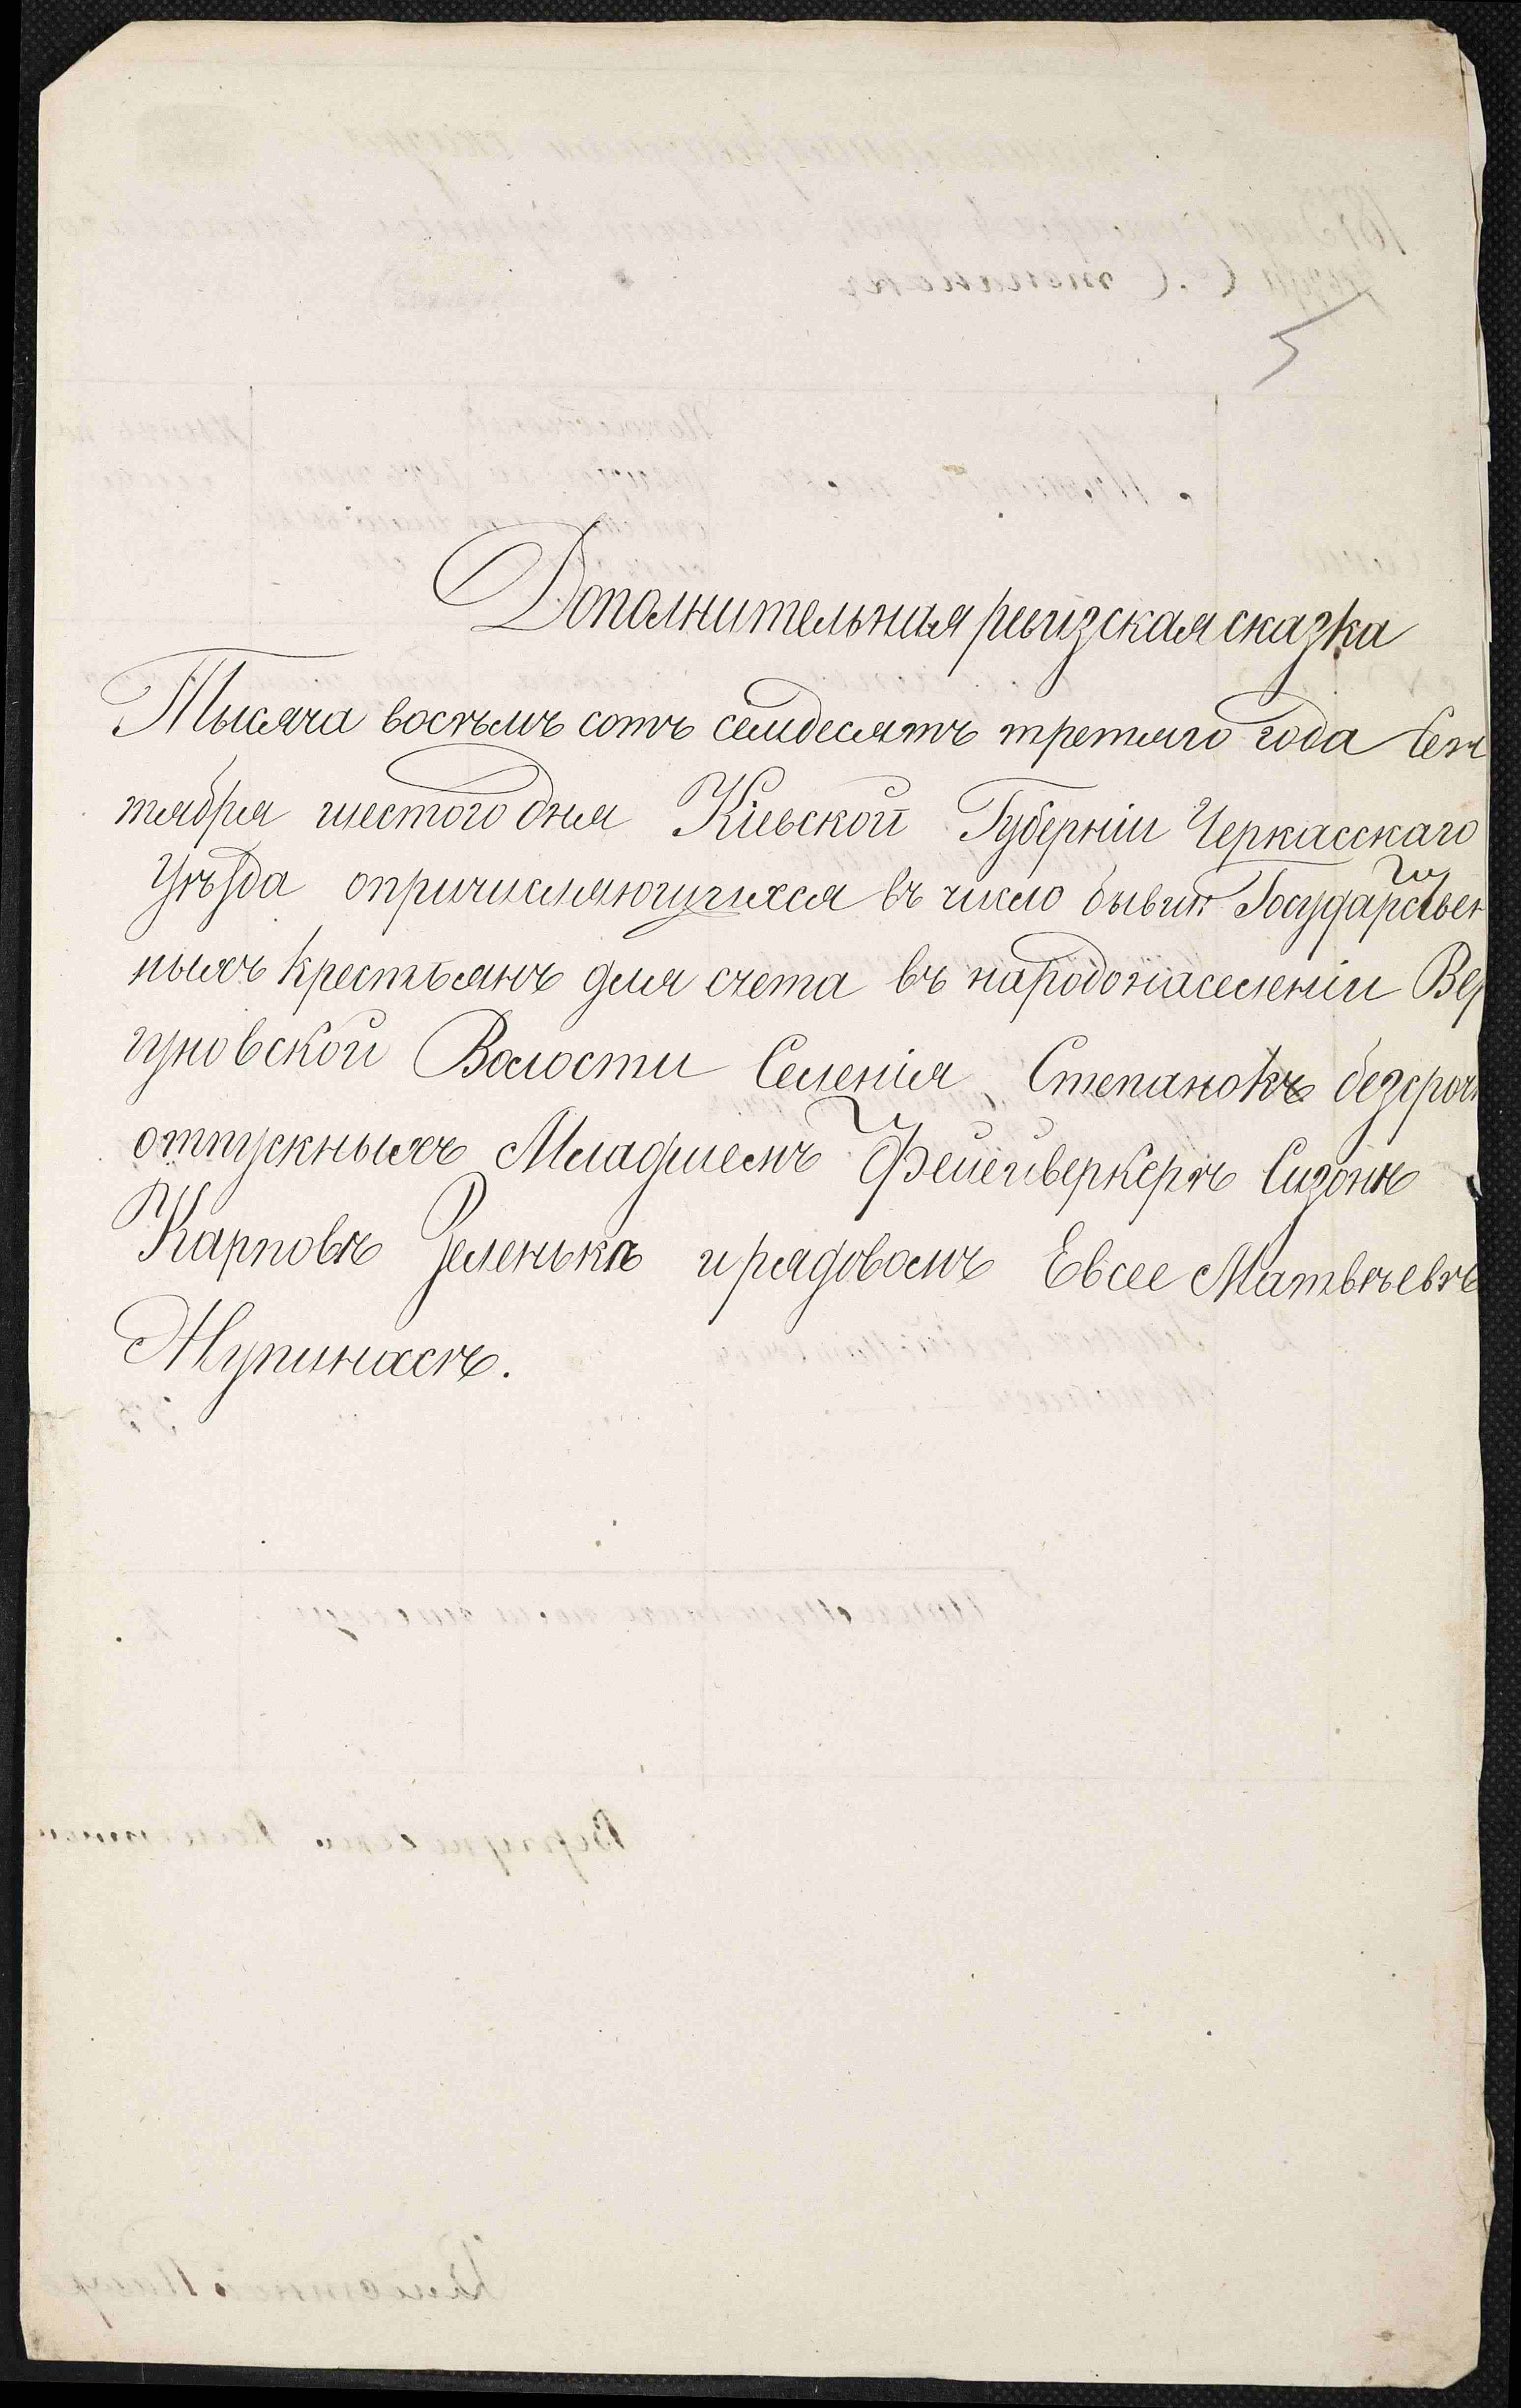 5
Дополнительная ревизская сказка
Тысяча восѣмъ сотъ семдесятъ третяго года Сен
тября шестого дня Кіевской Губерніи Черкасскаго
Уѣзда опричисляющихся въ число бывш Государствен
ныхъ крестьянъ для счета въ народонаселеніи Вер
гуновской Волости Селенія Степанокъ безсроч
отпускныхъ Младшемъ Фейейверкерѣ Сизонѣ
Карповѣ Зеленькѣ и рядовомъ Евсее Матвѣевѣ